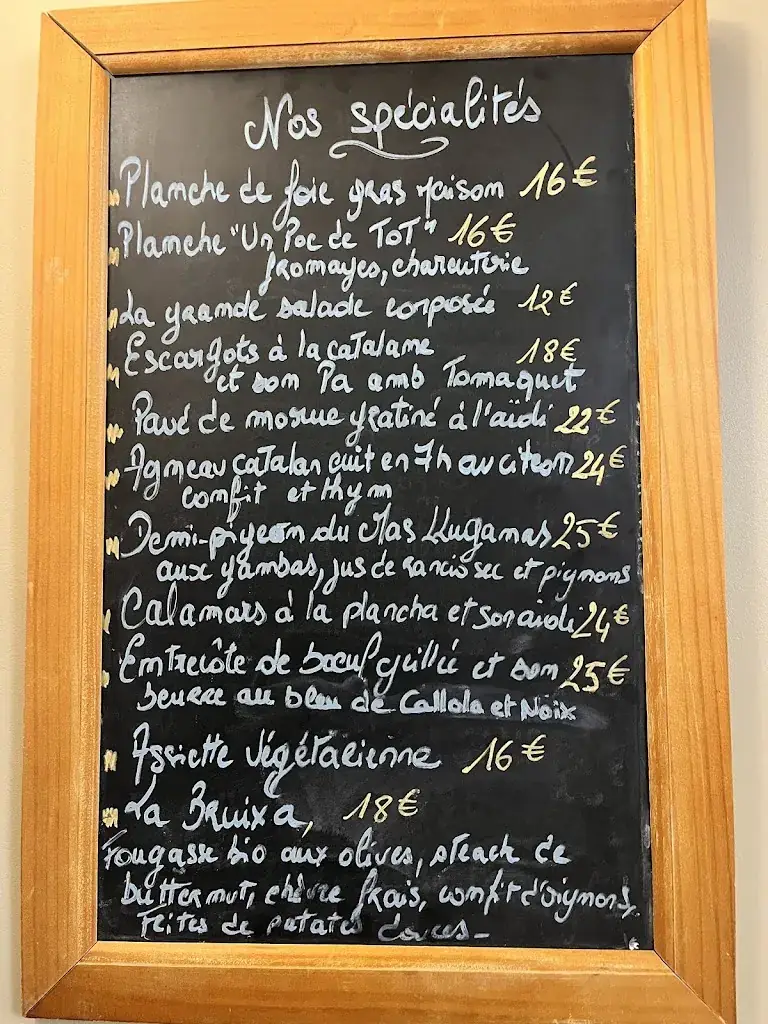 Nos spécialités
Planche de foie gras maison 16€
Planche "Un Poc de Tot" 16€
fromages, charcuterie
La grande salade composée 12€
Escargots à la catalane 18€
et son Pa amb Tomaquet
Pavé de morue gratiné à l'aïoli 22€
Agneau catalan cuit en 7h au citron 24€
confit et thym
Demi-pigeon du Mas Lluganas 25€
aux gambas, jus de rancio sec et pignons
Calamars à la plancha et son aïoli 24€
Entrecôte de boeuf grillée et son 25€
beurre au bleu de Callola et Noix
Assiette végétarienne 16€
La Bruixa, 18€
Fougasse bio aux olives, steack de
butternut, chèvre frais, confit d'oignons,
frites de patates douces-